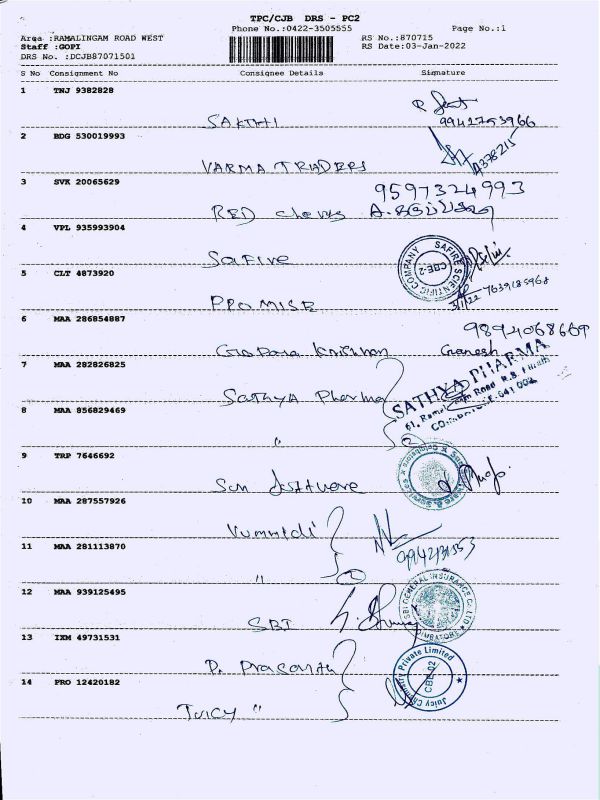 TPC/CJB DRS - PC2
Phone No.:0422-3505555 Page No.:1
Area :RAMALINGAM ROAD WEST RS No.:870715
Staff :GOPI RS Date:03-Jan-2022
DRS No. :DCJB87071501
S No Consignment No Consignee Details Signature
1 TNJ 9382828
SAKTHI 9942753966
2 BDG 530019993
VARMA TRADERS A378215
3 SVK 20065629 9597324993
RED
4 VPL 935993904
Safire SAFIRE SCIENTIFIC COMPANY CBE-2
5 CLT 4873920
PROMISE 3/1/22 7639185968
6 MAA 286854887 9894068669
Gopala Krishnan Ganesh
7 MAA 282826825
Sathya Pharma SATHYA PHARMA
61, Road, R.B.
641 002
8 MAA 856829469
" 2
9 TRP 7646692
Sun
10 MAA 287557926
Vummidi
11 MAA 281113870
" 2
12 MAA 939125495
SBI SBI GENERAL INSURANCE CO LTD COIMBATORE
13 IXM 49731531
P. Prasanth Juicy Chemistry Private Limited CBE-02
14 PRO 12420182
Juicy "